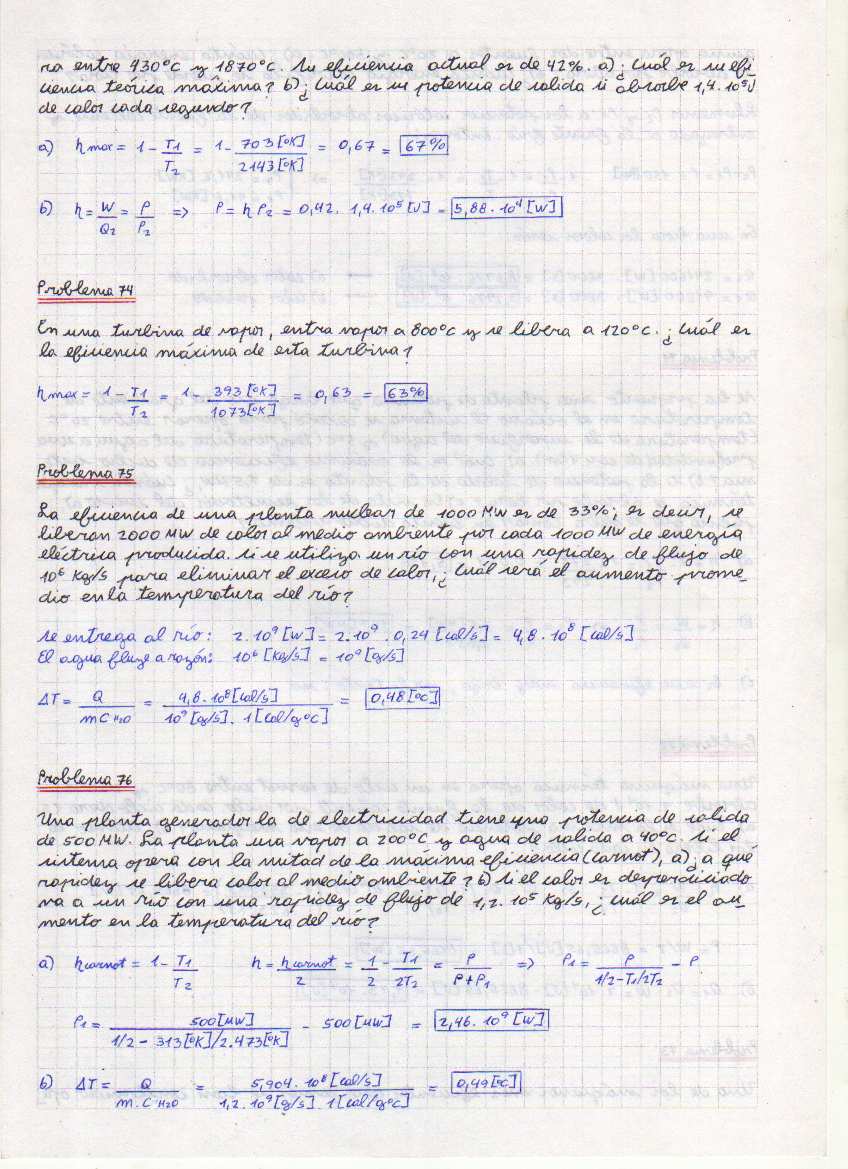 ra entre 430°C y 1870°C. Su eficiencia actual es de 42%. a) ¿Cuál es su efi
ciencia teórica máxima? b) ¿Cuál es su potencia de salida si absorbe 1,4. 10⁵J
de calor cada segundo?
a) hmax = 1 - T1/T2 = 1 - 703[°K]/2143[°K] = 0,67 = 67%
b) h = W/Q2 = P/P2 => P = h P2 = 0,42. 1,4. 10⁵[J] = 5,88. 10⁴[W]
Problema 74
En una turbina de vapor, entra vapor a 800°C y se libera a 120°C. ¿Cuál es
la eficiencia máxima de esta turbina?
hmax = 1 - T1/T2 = 1 - 393[°K]/1073[°K] = 0,63 = 63%
Problema 75
La eficiencia de una planta nuclear de 1000 MW es de 33%; es decir, se
liberan 2000 MW de calor al medio ambiente por cada 1000 MW de energía
eléctrica producida. Si se utiliza un río con una rapidez de flujo de
10⁶ Kg/s para eliminar el exceso de calor, ¿Cuál será el aumento prome-
dio en la temperatura del río?
Se entrega al río: 2. 10⁹[W] = 2. 10⁹. 0,24 [cal/s] = 4,8. 10⁸ [cal/s]
El agua fluye a razón: 10⁶ [Kg/s] = 10⁹[g/s]
ΔT = Q/m C H2O = 4,8. 10⁸[cal/s]/10⁹[g/s]. 1[cal/g°C] = 0,48[°C]
Problema 76
Una planta generador la de electricidad tiene una potencia de salida
de 500 MW. La planta usa vapor a 200°C y agua de salida a 40°C. Si el
sistema opera con la mitad de la máxima eficiencia (Carnot), a) ¿a qué
rapidez se libera calor al medio ambiente? b) Si el calor es desperdiciado
va a un río con una rapidez de flujo de 1,2. 10⁵ Kg/s, ¿cuál es el au-
mento en la temperatura del río?
a) hcarnot = 1 - T1/T2 h = hcarnot/2 = 1/2 - T1/2T2 = P/P+P1 => P1 = P/1/2-T1/2T2 - P
P1 = 500[MW]/1/2 - 313[°K]/2.473[°K] - 500[MW] = 2,46. 10⁹[W]
b) ΔT = Q/m. C H2O = 5,904. 10⁸[cal/s]/1,2. 10⁹[g/s]. 1[cal/g°C] = 0,49[°C]